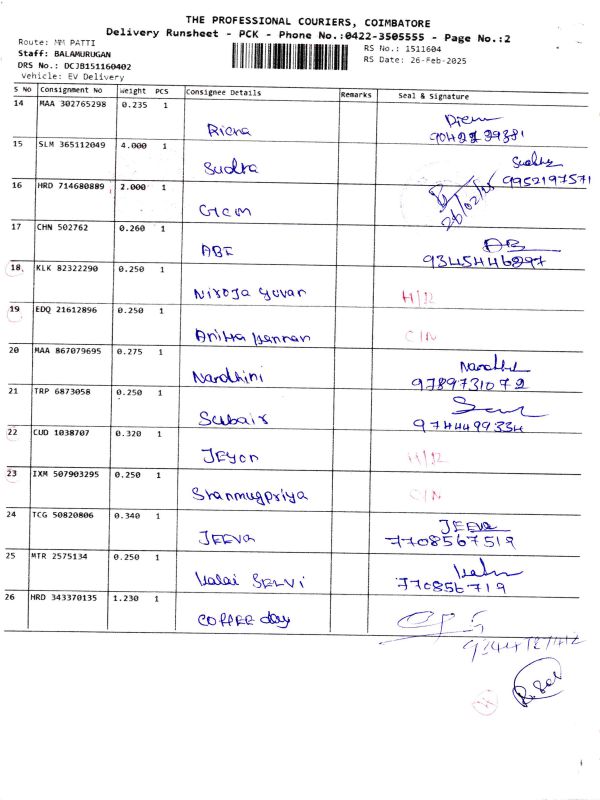 THE PROFESSIONAL COURIERS, COIMBATORE
Delivery Runsheet - PCK - Phone No.:0422-3505555 - Page No.:2
Route: MM PATTI
RS No.: 1511604
Staff: BALAMURUGAN
RS Date: 26-Feb-2025
DRS No.: DCJB151160402
Vehicle: EV Delivery
S No Consignment No Weight PCS Consignee Details Remarks Seal & Signature
14 MAA 302765298 0.235 1
Riena
15 SLM 365112049 4.000 1
Sudha
9952197571
16 HRD 714680889 2.000 1
26/02/25
17 CHN 502762 0.260 1
ABI AB
9345446297
18 KLK 82322290 0.250 1
Niroja yuvan H/R
19 EDQ 21612896 0.250 1
Anitha kannan C/N
20 MAA 867079695 0.275 1
Nandhini
9789731072
21 TRP 6873058 0.250 1
Subair
9744499334
22 CUD 1038707 0.320 1
JEYON H/R
23 IXM 507903295 0.250 1
Shanmugpriya C/N
24 TCG 50820806 0.340 1
JEEVA JEEVA
7708567519
25 MTR 2575134 0.250 1
Kalai SELVI
770856719
26 HRD 343370135 1.230 1
COFFEE day